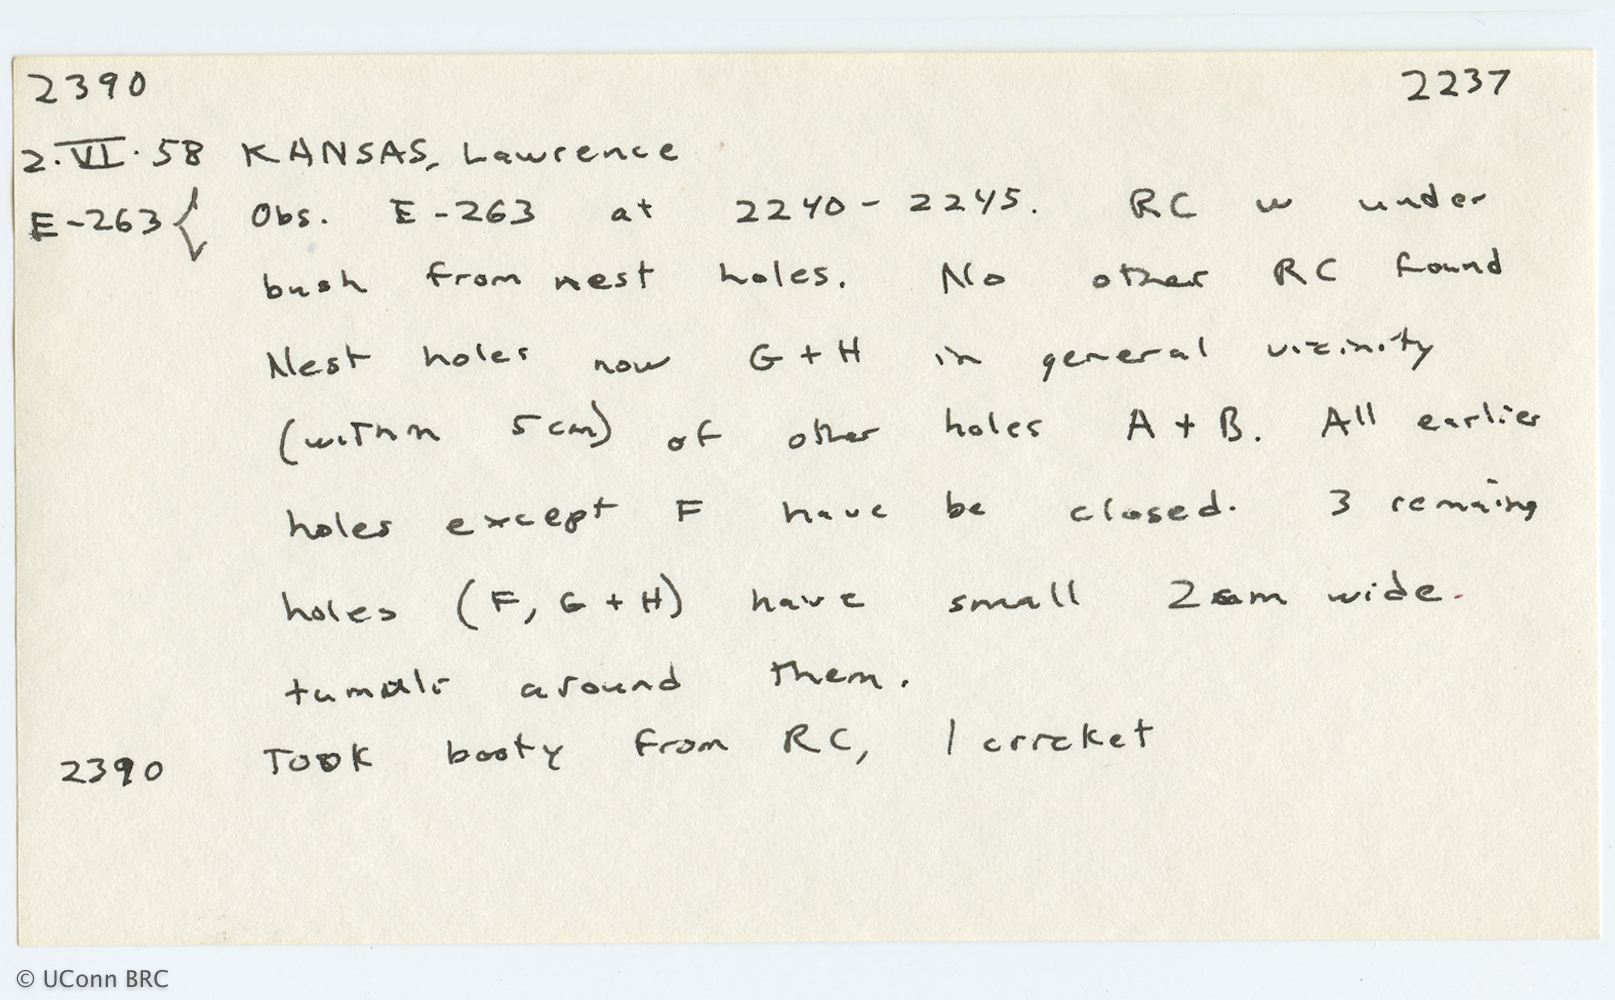 2390 2237
2·VI·58 KANSAS, Lawrence
E-263 { Obs. E-263 at 2240-2245. RC w under
bush from nest holes. No other RC found
Nest holes now G+H in general vicinity
(within 5cm) of other holes A+B. All earlier
holes except F have be closed. 3 remaing
holes (F, G+H) have small 2cm wide.
tumuli around them.
2390 Took booty from RC, 1 crrcket
© UConn BRC